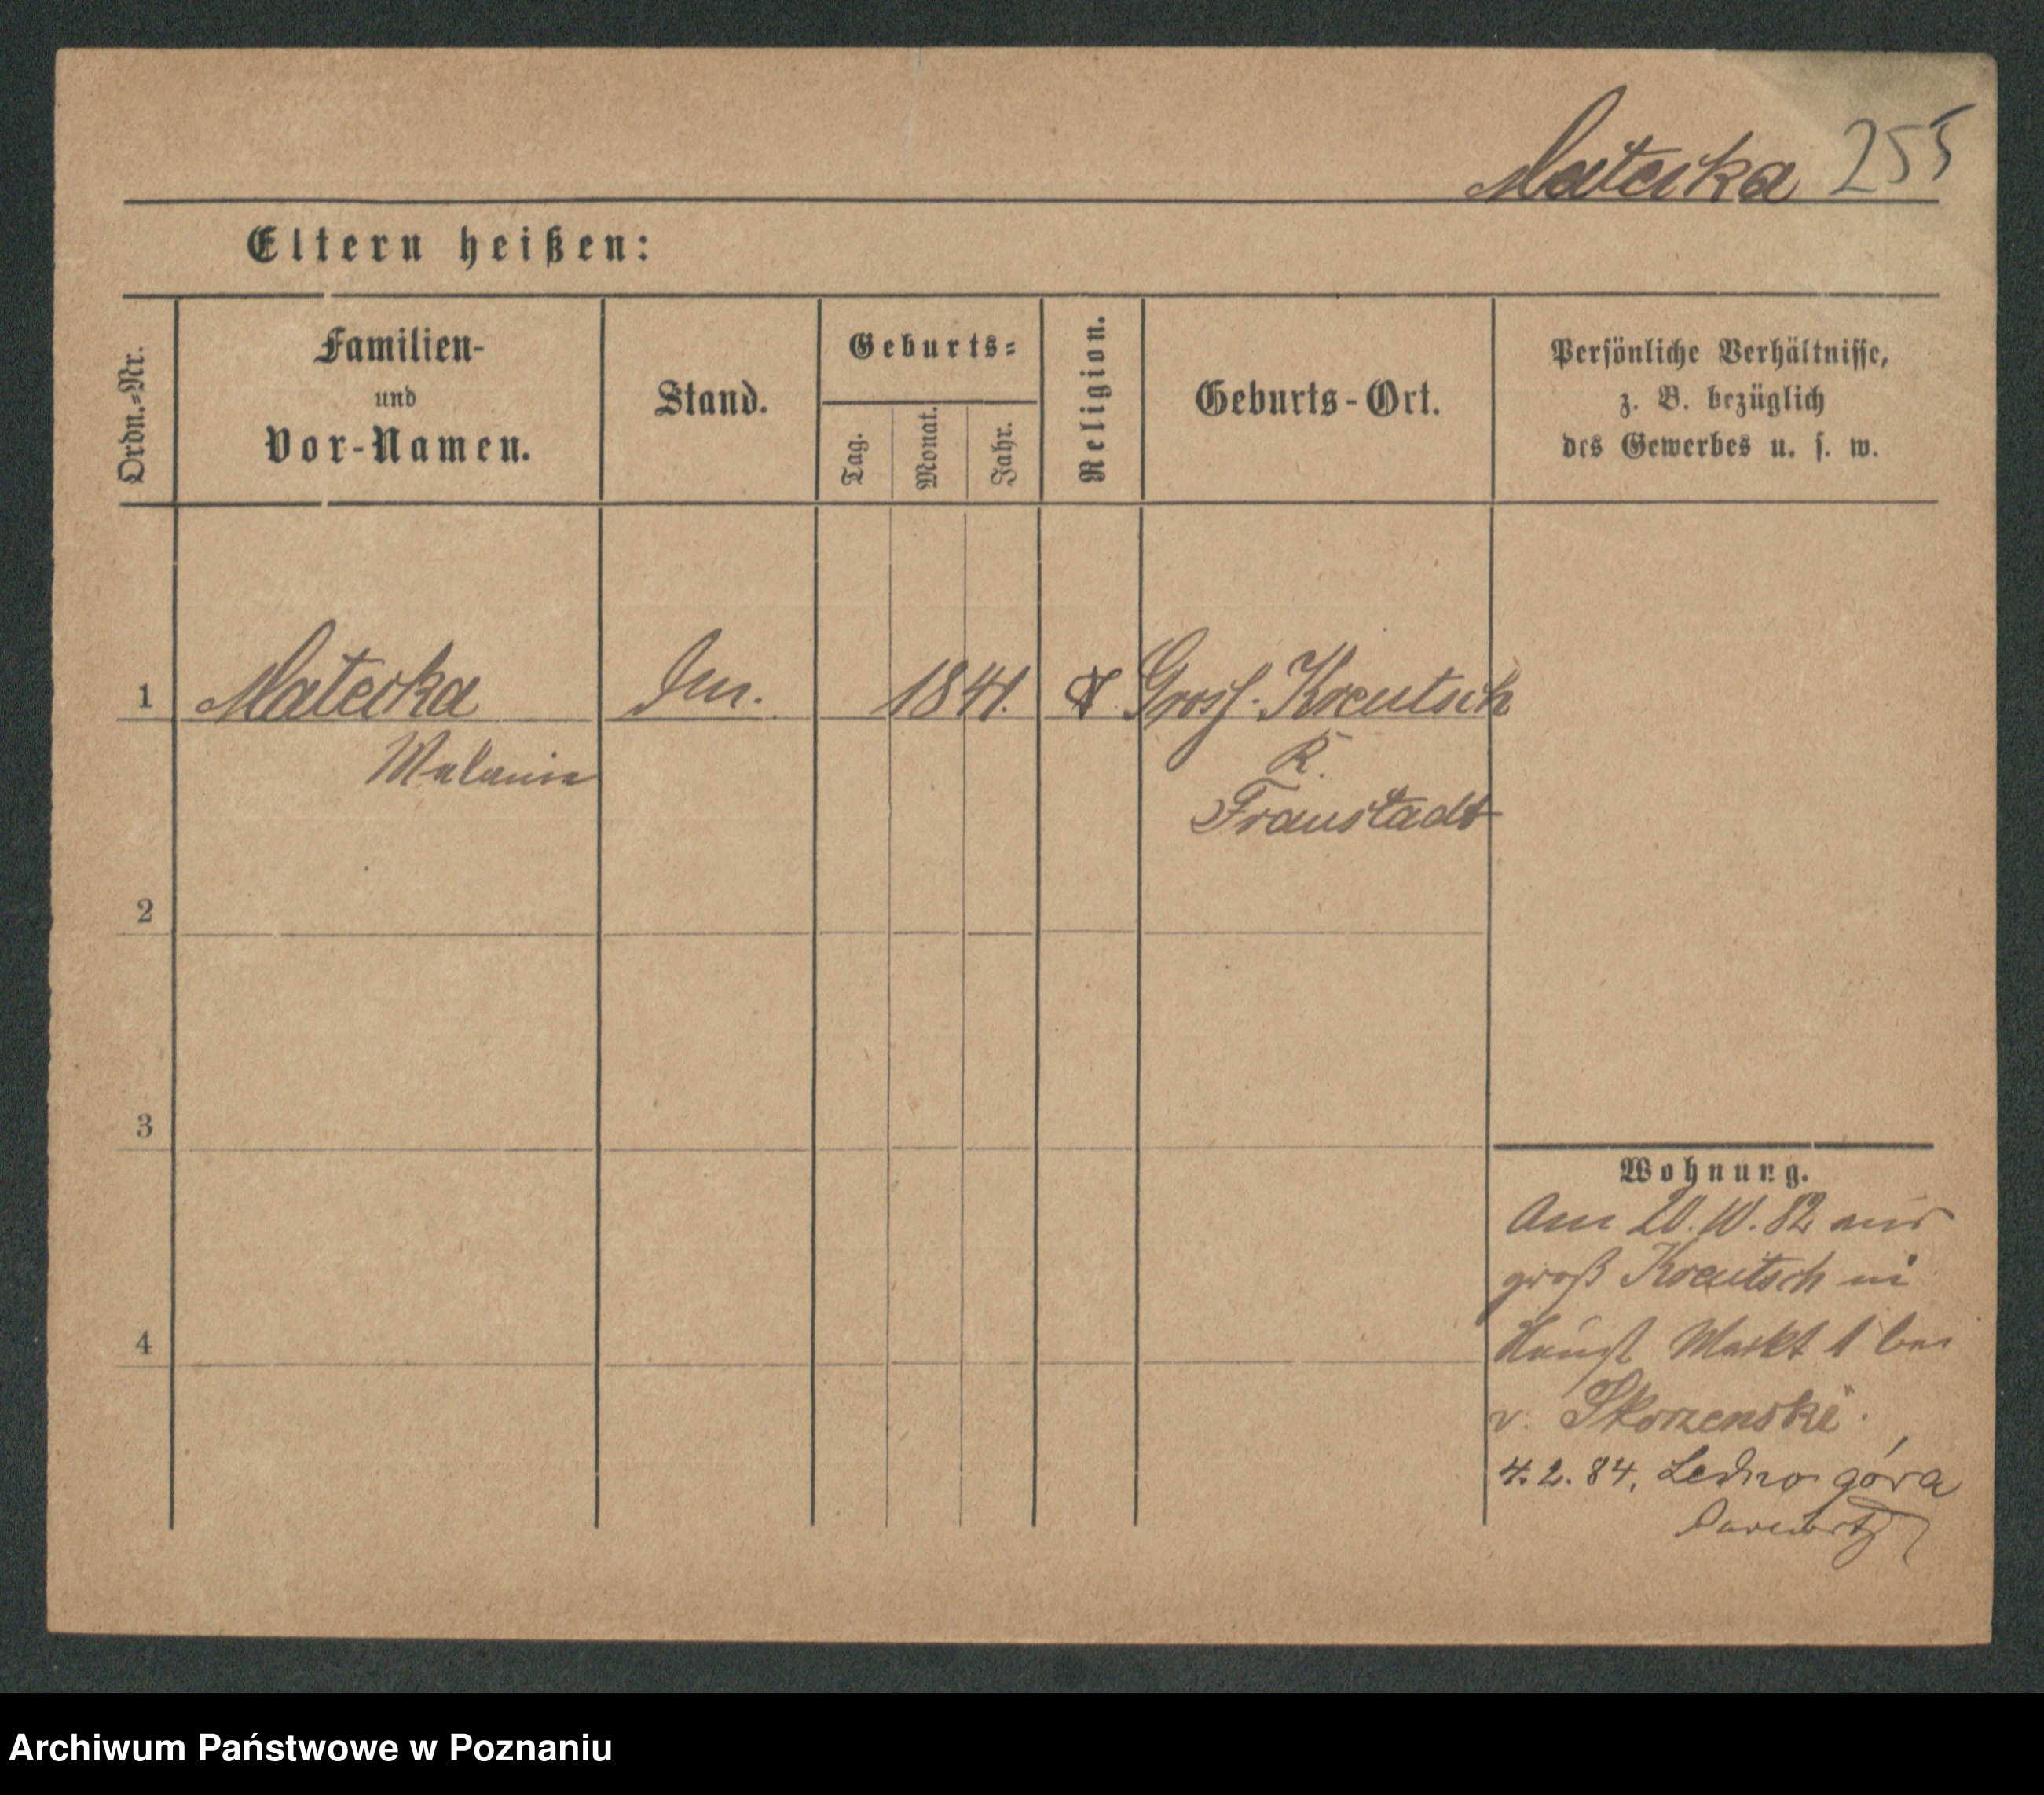 Matecka 255
Eltern heißen:
Ordn.-Nr.
Familien-
und
Vor-Namen.
Stand.
Geburts-
Tag.
Monat.
Jahr.
Religion.
Geburts-Ort.
Persönliche Verhältnisse,
z. B. bezüglich
des Gewerbes u. s. w.
1 Matecka 1841. Gross-Kreutsch
Melanie K.
Fraustadt
2
3
4
Wohnung.
Am 20.10.82 aus
groß Kreutsch in
Markt 1 bei
v. Skorzenski.
4.2.84. Lednogóra
Archiwum Państwowe w Poznaniu